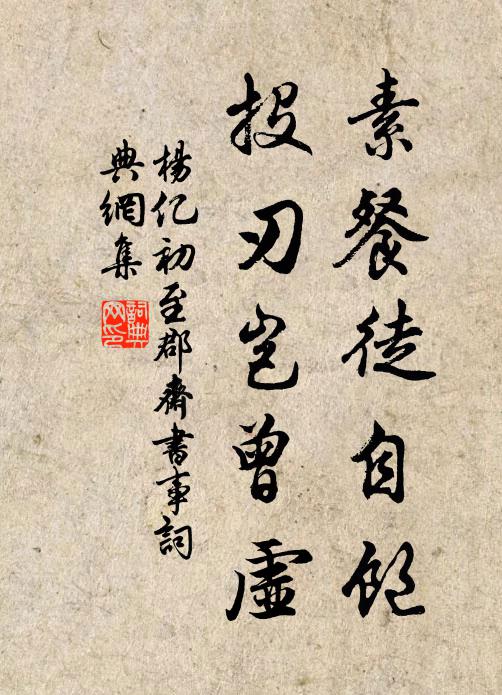 素餐徒自飽
投刃豈曾虛
楊億初至郡齋書事詞
典網集
詞典
网印